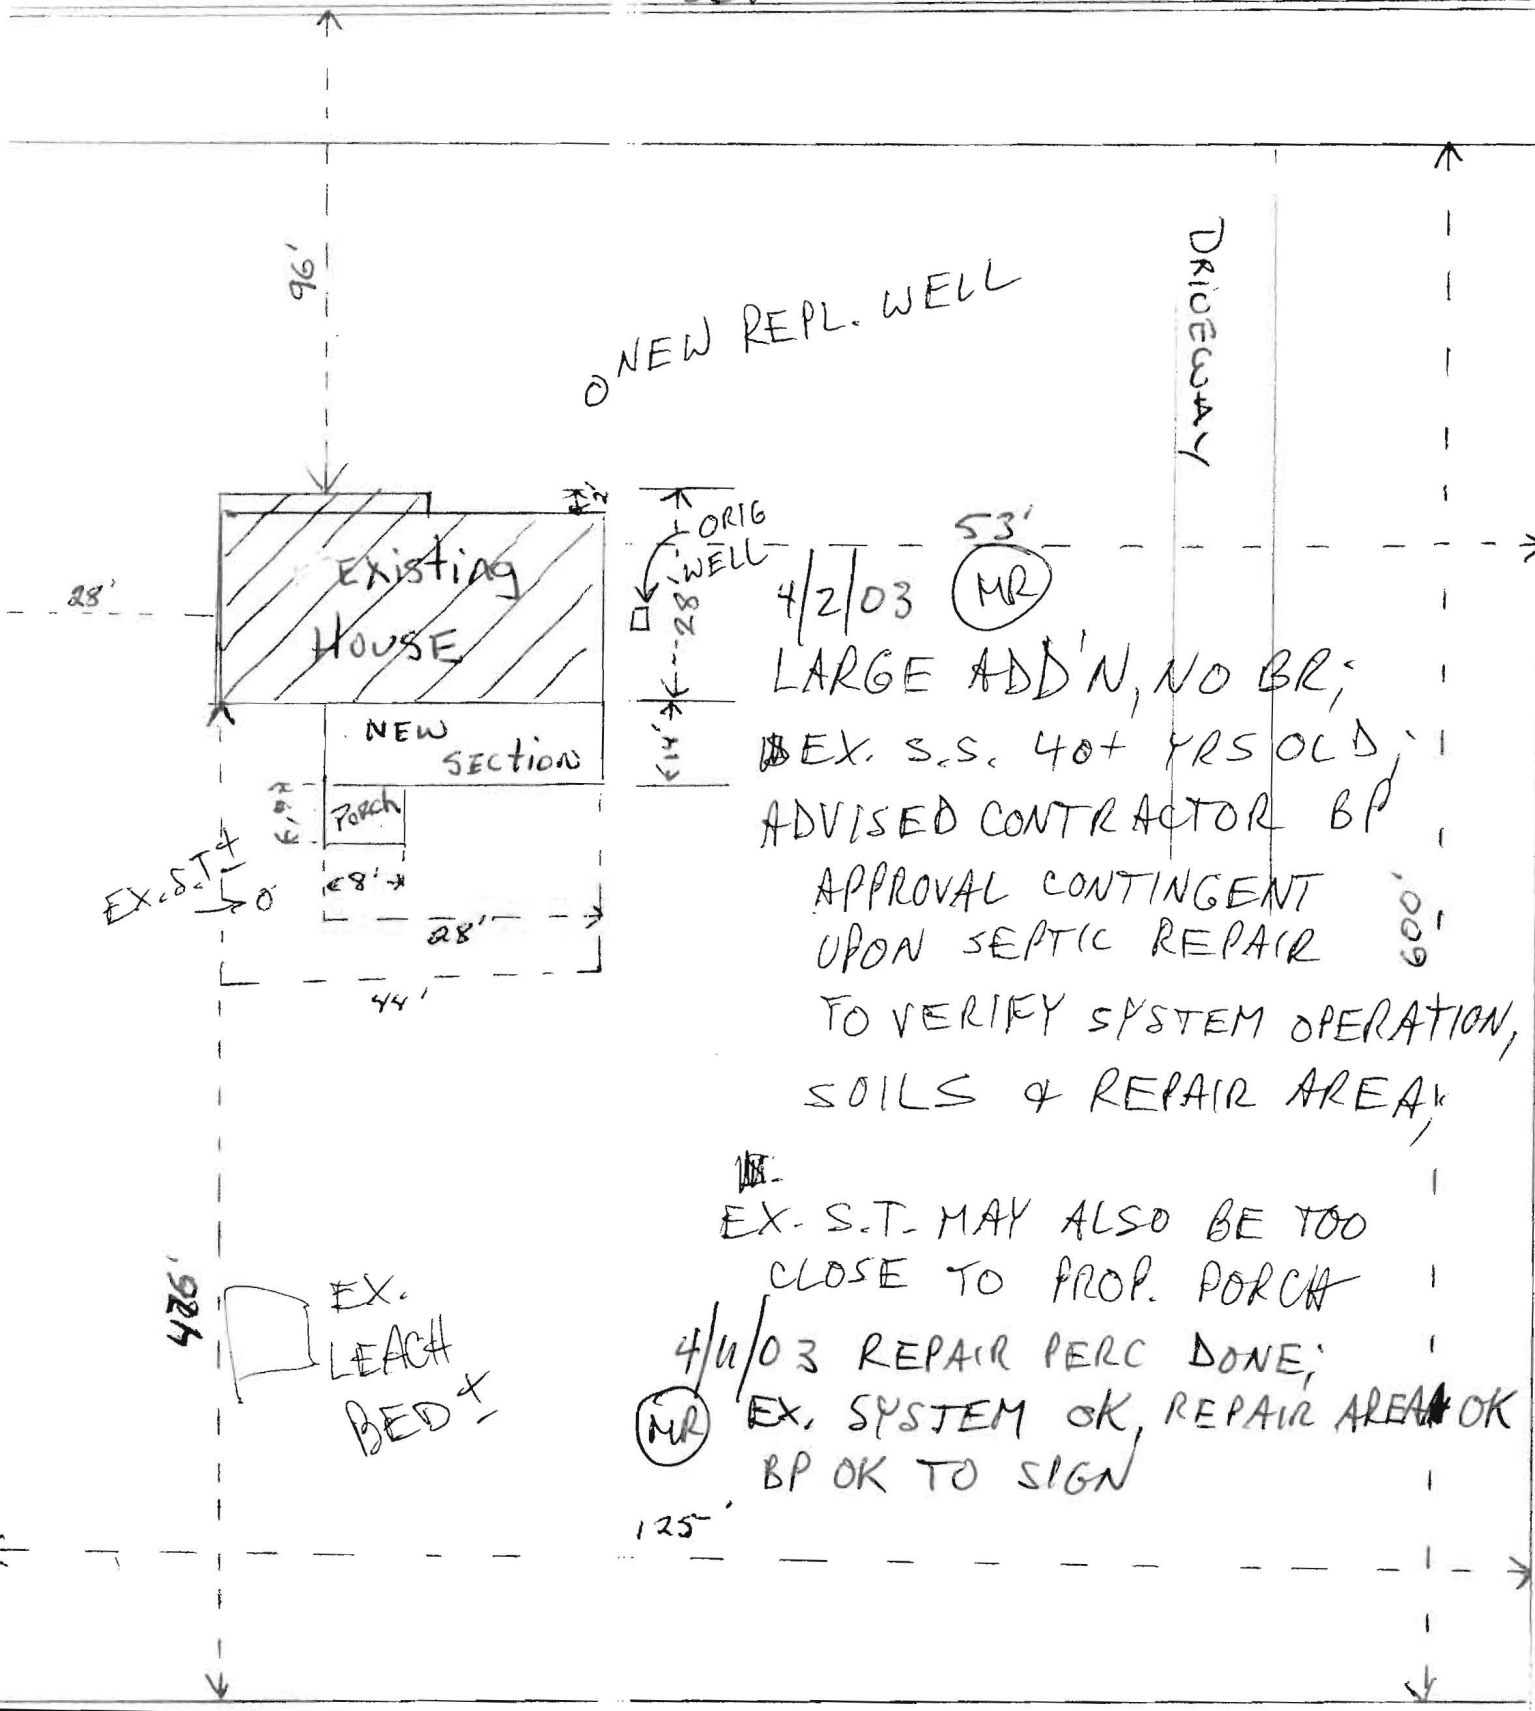 96'
DRIVEWAY
NEW REPL. WELL
2'
ORIG
WELL
53'
28'
Existing
HOUSE
28'
4/2/03 MR
LARGE ADD'N, NO BR;
EX. S.S. 40+ YRS OLD;
ADVISED CONTRACTOR BP
APPROVAL CONTINGENT
UPON SEPTIC REPAIR
TO VERIFY SYSTEM OPERATION,
SOILS & REPAIR AREA;
NEW
SECTION
14'
Porch
EX. S.T. ±
8'
28'
44'
600'
EX. S.T. MAY ALSO BE TOO
CLOSE TO PROP. PORCH
EX.
LEACH
BED ±
REPAIR PERC DONE;
MR EX. SYSTEM OK, REPAIR AREA OK
BP OK TO SIGN
125'